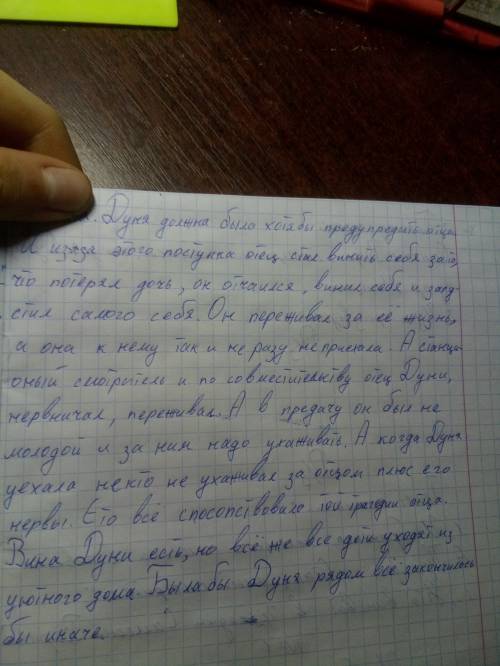 Дуня должна была хотябы предупредить отца.
И изяза этого поступка отец стал винить себя зато,
что потерял дочь, он отчаился, винил себя и запу
стил самого себя. Он переживал за её жизнь,
а она к нему так и не разу неприехала. А станци
оный смотритель и по совместительству отец Дуни,
нервничал, переживал. А в предачу он был не
молодой и за ним надо ухаживать. А когда Дуня
уехала некто не ухаживал за отцом плюс его
нервы. Ето всё спосопствовило той трагедии отца.
Вина Дуни есть, но всё же все дети уходят из
уютного дома. Былабы Дуня рядом всё закончилось
бы иначе.